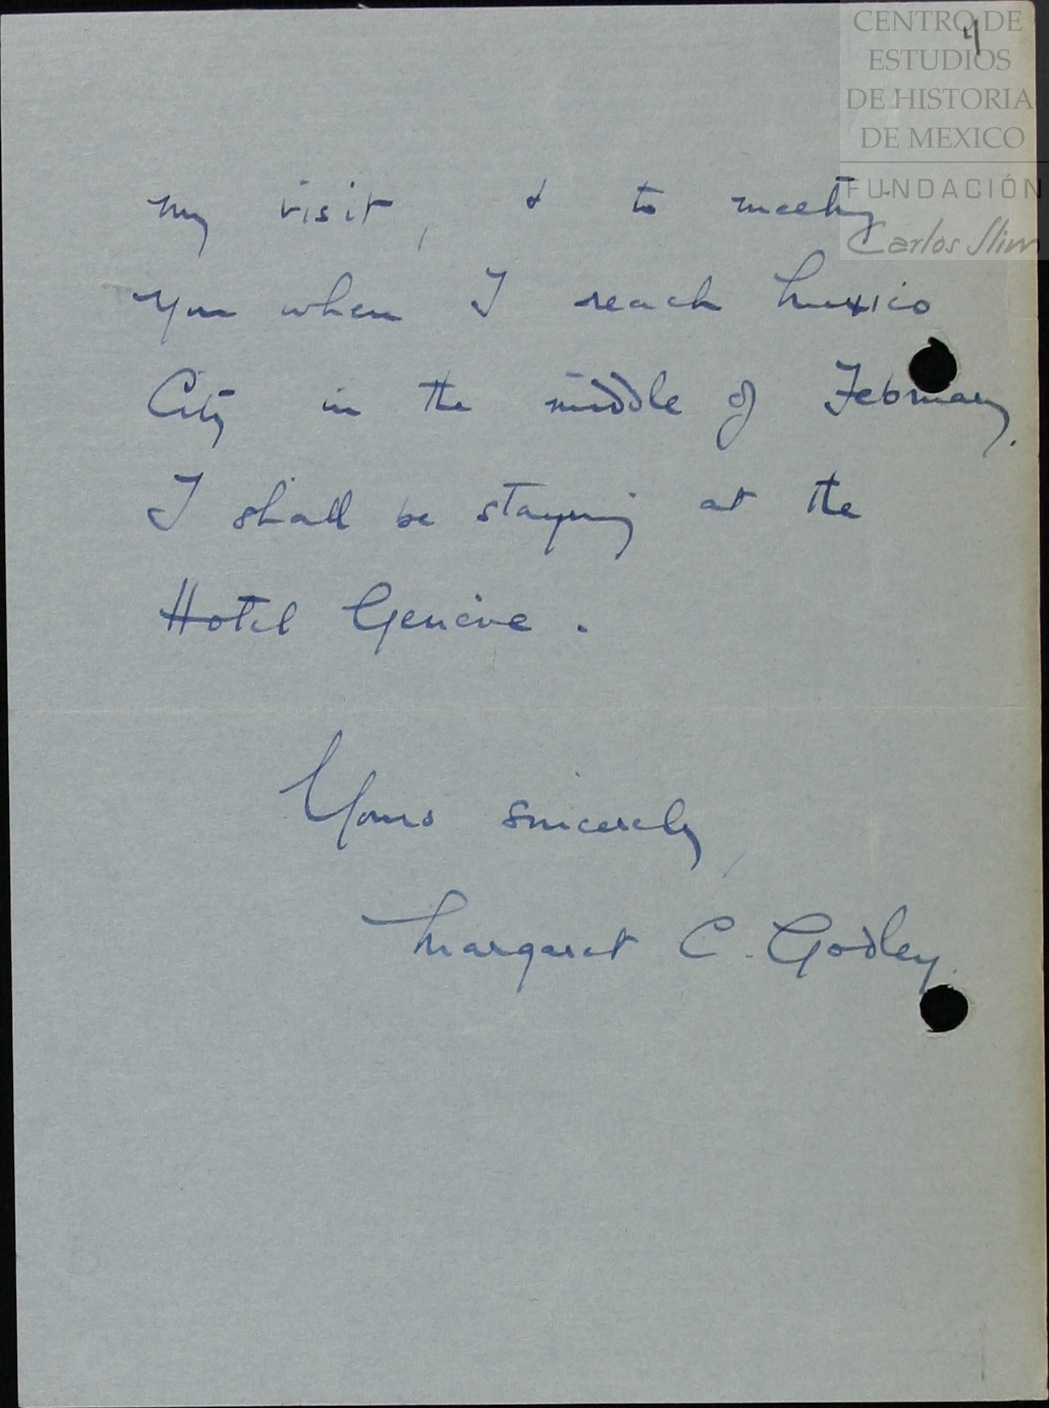 CENTRO DE
ESTUDIOS
DE HISTORIA
DE MEXICO
FUNDACIÓN
Carlos Slim
4
my visit, & to meeting
you when I reach Mexico
City in the middle of February.
I shall be staying at the
Hotel Genève.
Yours sincerely,
Margaret C. Godley.